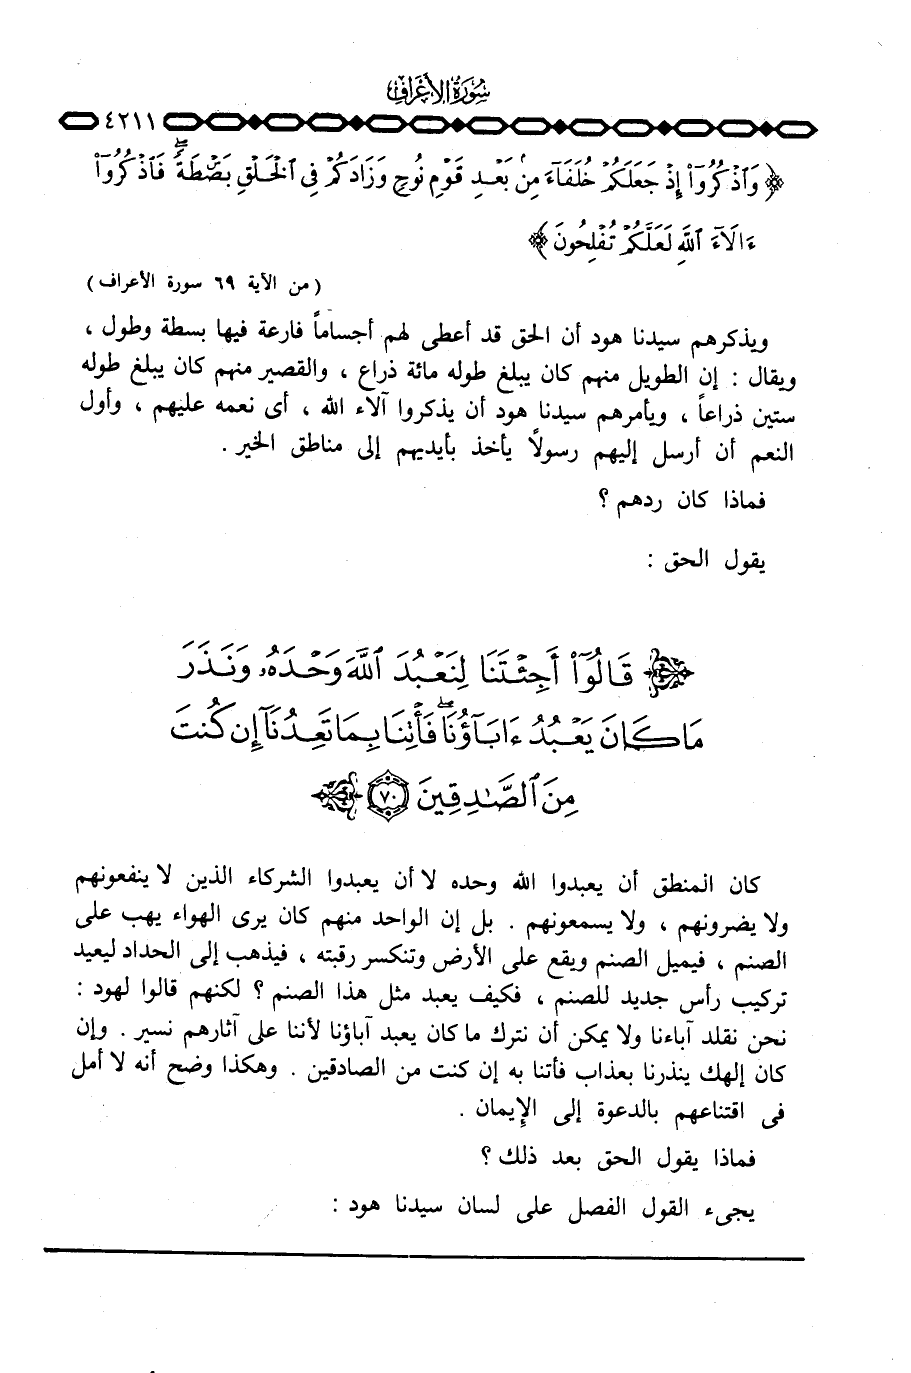 سُورَةُ الأَعْرَافِ
٤٢١١
﴿ وَاذْكُرُوا إِذْ جَعَلَكُمْ خُلَفَاءَ مِنْ بَعْدِ قَوْمِ نُوحٍ وَزَادَكُمْ فِي الْخَلْقِ بَصْطَةً فَاذْكُرُوا
ءَالَاءَ اللَّهِ لَعَلَّكُمْ تُفْلِحُونَ ﴾
( من الآية ٦٩ سورة الأعراف )
ويذكرهم سيدنا هود أن الحق قد أعطى لهم أجساماً فارعة فيها بسطة وطول ،
ويقال : إن الطويل منهم كان يبلغ طوله مائة ذراع ، والقصير منهم كان يبلغ طوله
ستين ذراعاً ، ويأمرهم سيدنا هود أن يذكروا آلاء الله ، أى نعمه عليهم ، وأول
النعم أن أرسل إليهم رسولاً يأخذ بأيديهم إلى مناطق الخير .
فماذا كان ردهم ؟
يقول الحق :
﴿ قَالُوا أَجِئْتَنَا لِنَعْبُدَ اللَّهَ وَحْدَهُ وَنَذَرَ
مَا كَانَ يَعْبُدُ ءَابَاؤُنَا فَأْتِنَا بِمَا تَعِدُنَا إِن كُنتَ
مِنَ الصَّادِقِينَ ٧٠ ﴾
كان المنطق أن يعبدوا الله وحده لا أن يعبدوا الشركاء الذين لا ينفعونهم
ولا يضرونهم ، ولا يسمعونهم . بل إن الواحد منهم كان يرى الهواء يهب على
الصنم ، فيميل الصنم ويقع على الأرض وتنكسر رقبته ، فيذهب إلى الحداد ليعيد
تركيب رأس جديد للصنم ، فكيف يعبد مثل هذا الصنم ؟ لكنهم قالوا لهود :
نحن نقلد آباءنا ولا يمكن أن نترك ما كان يعبد آباؤنا لأننا على آثارهم نسير . وإن
كان إلهك ينذرنا بعذاب فأتنا به إن كنت من الصادقين . وهكذا وضح أنه لا أمل
فى اقتناعهم بالدعوة إلى الإيمان .
فماذا يقول الحق بعد ذلك ؟
يجىء القول الفصل على لسان سيدنا هود :